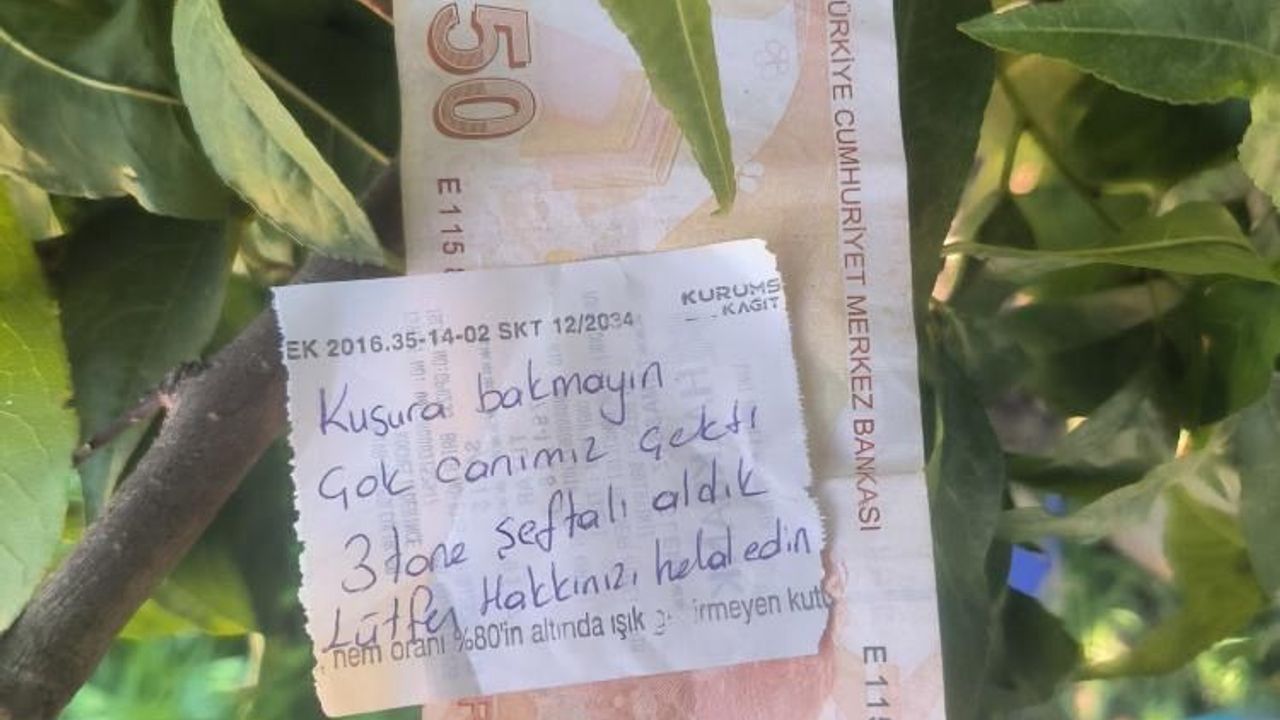 50
E 115
TÜRKİYE CUMHURİYET MERKEZ BANKASI
KURUMS
KAĞIT
EK 2016.35-14-02 SKT 12/2034
Kusura bakmayın
Çok canımız çekti
3 tane şeftali aldık
Lütfen Hakkınızı helal edin
nem oranı %80'in altında ışık kutu
E 115